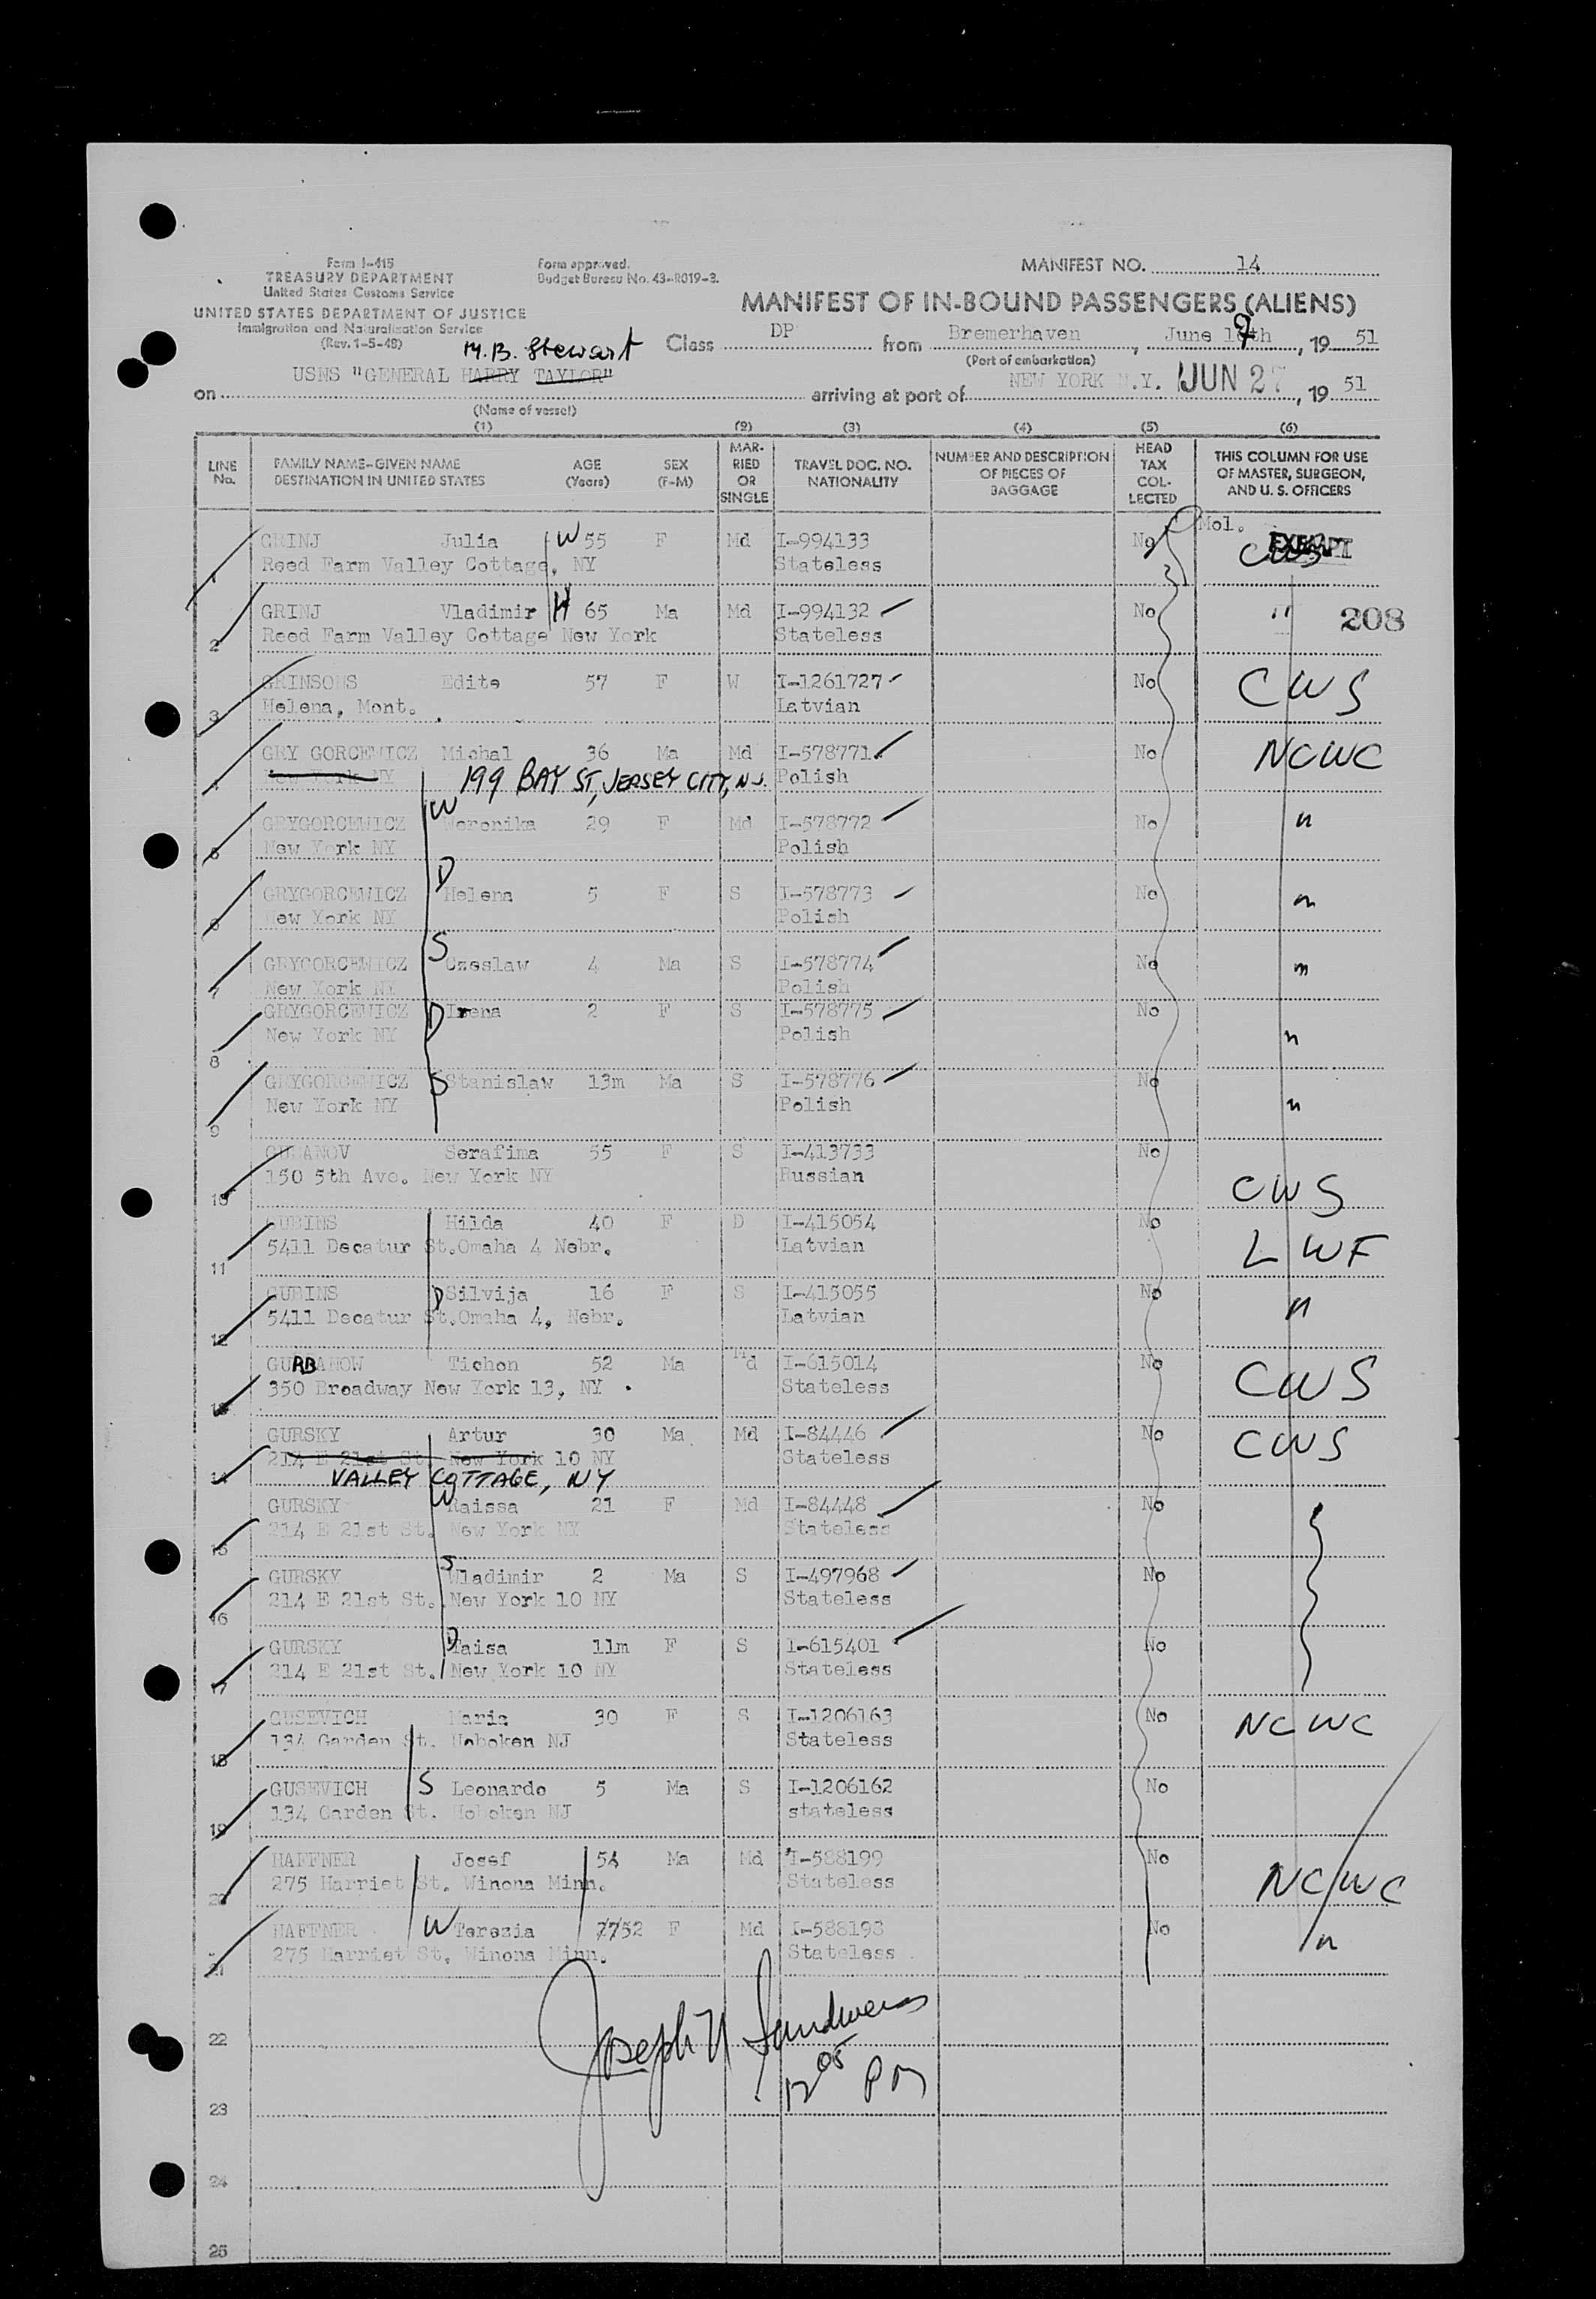 Form I-415
TREASURY DEPARTMENT
United States Customs Service
UNITED STATES DEPARTMENT OF JUSTICE
Immigration and Naturalization Service
(Rev. 1-5-48)
Form approved.
Budget Bureau No. 43-R019-3.
MANIFEST NO. 14
MANIFEST OF IN-BOUND PASSENGERS (ALIENS)
Class DP from Bremerhaven, June 19th, 19 51
(Port of embarkation)
M.B. Stewart
on USNS "GENERAL HARRY TAYLOR" arriving at port of NEW YORK N.Y. JUN 27, 19 51
(Name of vessel)
(1) (2) (3) (4) (5) (6)
LINE No. FAMILY NAME-GIVEN NAME DESTINATION IN UNITED STATES AGE (Years) SEX (F-M) MARRIED OR SINGLE TRAVEL DOC. NO. NATIONALITY NUMBER AND DESCRIPTION OF PIECES OF BAGGAGE HEAD TAX COLLECTED THIS COLUMN FOR USE OF MASTER, SURGEON, AND U. S. OFFICERS
1 GRINJ Julia W 55 F Md I-994133 No Mol. EXEMPT CWS
Reed Farm Valley Cottage, NY Stateless
2 GRINJ Vladimir H 65 Ma Md I-994132 No " 208
Reed Farm Valley Cottage New York Stateless
3 GRINSONS Edite 57 F W I-1261727 No CWS
Helena, Mont. Latvian
4 GRY GORCEWICZ Michal 36 Ma Md I-578771 No NCWC
New York NY 199 BAY ST, JERSEY CITY, N.J. Polish
5 GRYGORCEWICZ W Weronika 29 F Md I-578772 No "
New York NY Polish
6 GRYGORCEWICZ D Helena 5 F S I-578773 No "
New York NY Polish
7 GRYGORCEWICZ S Czeslaw 4 Ma S I-578774 No "
New York NY Polish
8 GRYGORCEWICZ D Irena 2 F S I-578775 No "
New York NY Polish
9 GRYGORCEWICZ S Stanislaw 13m Ma S I-578776 No "
New York NY Polish
10 Serafima 55 F S I-413733 No CWS
150 5th Ave. New York NY Russian
11 GUBINS Hilda 40 F D I-415054 No LWF
5411 Decatur St.Omaha 4 Nebr. Latvian
12 GUBINS D Silvija 16 F S I-415055 No "
5411 Decatur St.Omaha 4, Nebr. Latvian
13 GURBANOW Tichon 52 Ma Md I-615014 No CWS
350 Broadway New York 13, NY Stateless
14 GURSKY Artur 30 Ma Md I-84446 No CWS
214 E 21st St. New York 10 NY Stateless
VALLEY COTTAGE, NY
15 GURSKY W Raissa 21 F Md I-84448 No
214 E 21st St. New York NY Stateless
16 GURSKY S Wladimir 2 Ma S I-497968 No
214 E 21st St. New York 10 NY Stateless
17 GURSKY D Taisa 11m F S I-615401 No
214 E 21st St. New York 10 NY Stateless
18 GUSEVICH Maria 30 F S I-1206163 No NCWC
134 Garden St. Hoboken NJ Stateless
19 GUSEVICH S Leonardo 5 Ma S I-1206162 No
134 Garden St. Hoboken NJ stateless
20 HAFFNER Josef 54 Ma Md I-588199 No NCWC
275 Harriet St. Winona Minn. Stateless
21 HAFFNER W Terezia 52 F Md I-588198 No "
275 Harriet St. Winona Minn. Stateless
22
Joseph
12 05 PM
23
24
25